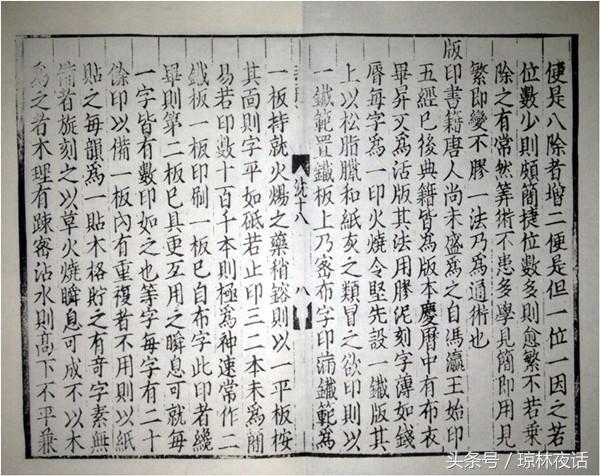 便是八除者增二便是但一位一因之若
位數少則頗簡捷位數多則愈繁不若乗
除之有常然筭術不患多學見簡即用見
繁即變不膠一法乃爲通術也
版印書籍唐人尚未盛爲之自馮瀛王始印
五經已後典籍皆爲版本慶曆中有布衣
畢昇又爲活版其法用膠泥刻字薄如錢
脣每字爲一印火燒令堅先設一鐵版其
上以松脂臘和紙灰之類冒之欲印則以
一鐵範置鐵板上乃密布字印滿鐵範爲
沈十八
八
一板持就火煬之藥稍鎔則以一平板按
其面則字平如砥若止印三二本未爲簡
易若印數十百千本則極爲神速常作二
鐵板一板印刷一板已自布字此印者纔
畢則第二板已具更互用之瞬息可就每
一字皆有數印如之也等字每字有二十
餘印以備一板內有重複者不用則以紙
貼之每韻爲一貼木格貯之有奇字素無
備者旋刻之以草火燒瞬息可成不以木
爲之者木理有踈密沾水則高下不平兼
头条号／琼林夜话